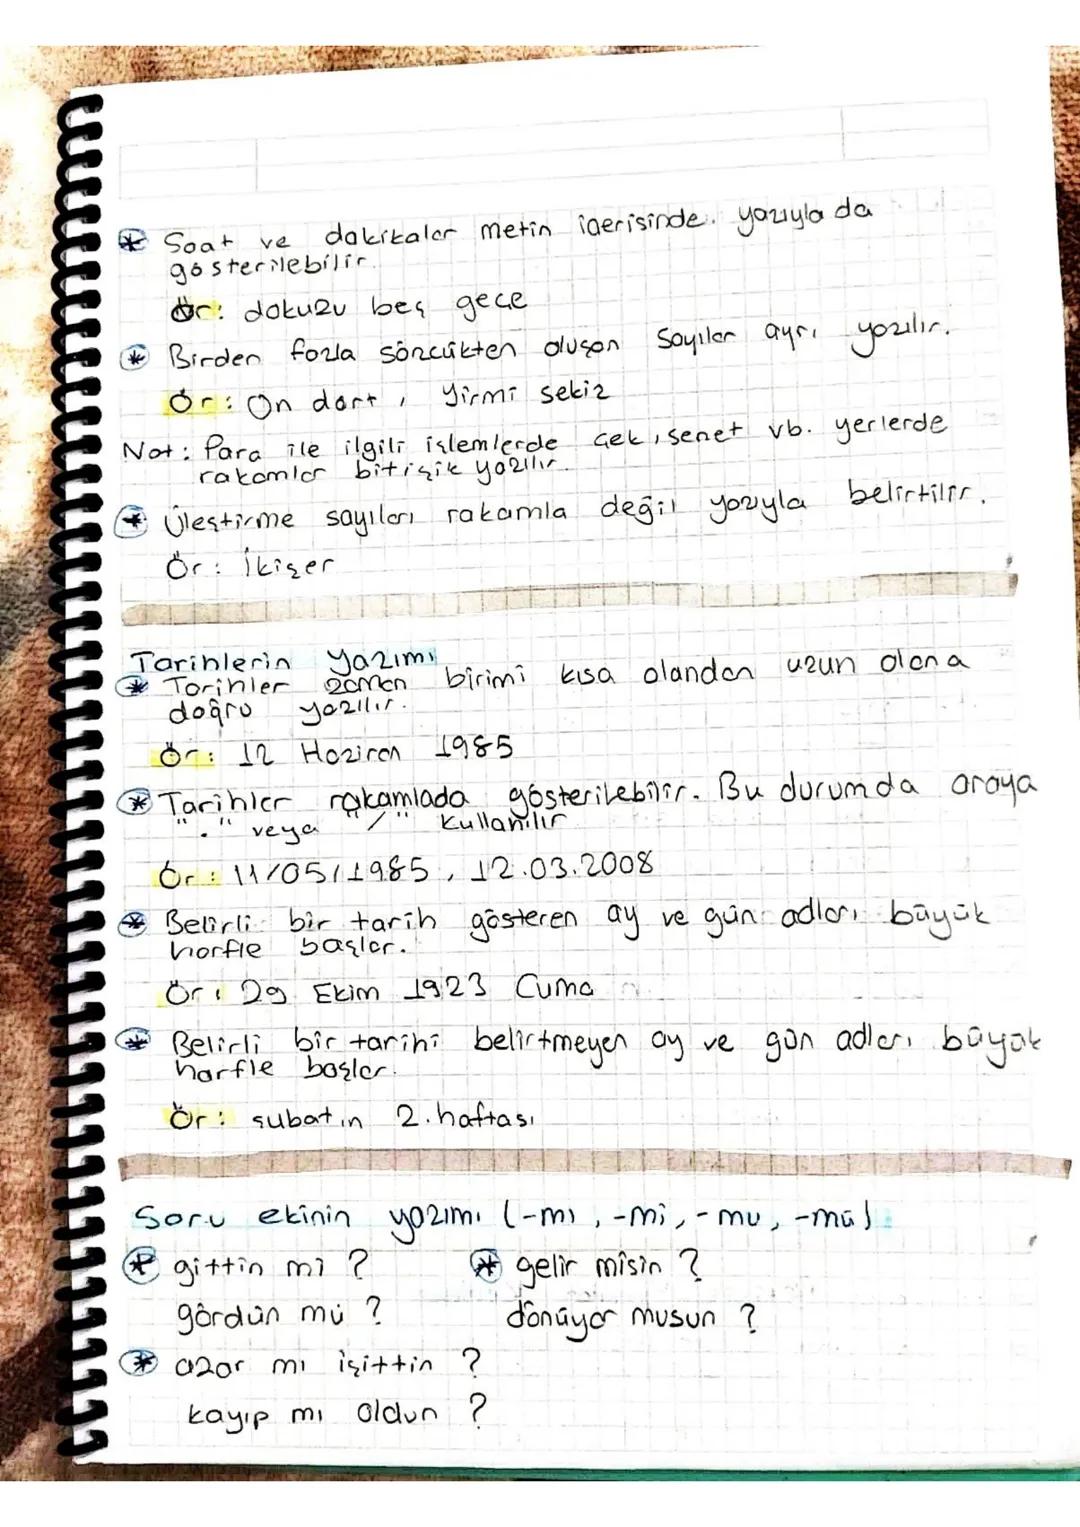 Saat ve dakikalar metin içerisinde yazıyla da
gösterilebilir.
Ör: dokuzu beş geçe
Birden fazla sözcükten oluşan sayılar ayrı yazılır.
Ör: On dört, Yirmi sekiz
Not: Para ile ilgili işlemlerde çek, senet vb. yerlerde
rakamlar bitişik yazılır.
Üleştirme sayıları rakamla değil yazıyla belirtilir.
Ör: İkişer
Tarihlerin yazımı
Tarihler zaman birimi kısa olandan uzun olana
doğru yazılır.
Ör: 12 Haziran 1985
Tarihler rakamlada gösterilebilir. Bu durumda araya
"." veya "/" kullanılır
Ör: 11/05/1985, 12.03.2008
Belirli bir tarih gösteren ay ve gün adları büyük
harfle başlar.
Ör: 29 Ekim 1923 Cuma
Belirli bir tarihi belirtmeyen ay ve gün adları büyük
harfle başlar.
Ör: şubatın 2. haftası
Soru ekinin yazımı (-mı, -mi, -mu, -mü)
gittin mi? gelir misin?
gördün mü? dönüyor musun?
azar mı işittin?
kayıp mı oldun?